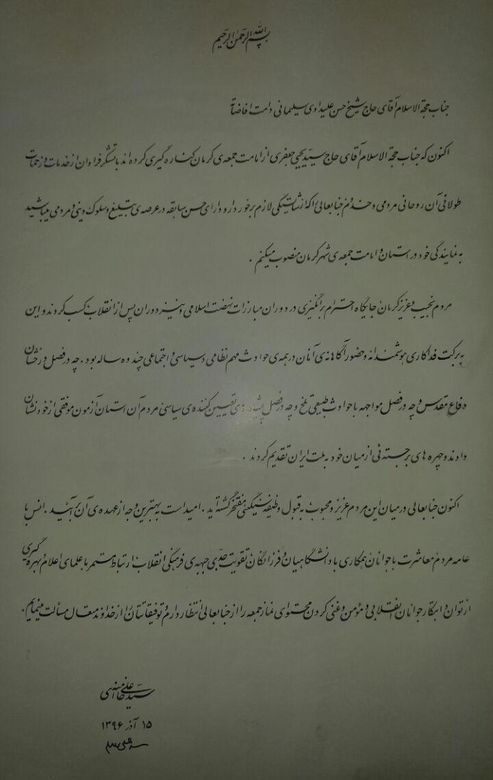 بسم الله الرحمن الرحیم
جناب حجة الاسلام آقای حاج شیخ حسن علیدادی سلیمانی دامت افاضاته
اکنون که جناب حجة الاسلام آقای حاج سید یحیی جعفری از امامت جمعه‌ی کرمان کناره گیری کرده اند با تشکر فراوان از خدمات و زحمات
طولانی آن روحانی مردمی و خدوم جنابعالی را که از شایستگی لازم برخوردار و دارای حسن سابقه در عرصه‌ی تبلیغ و سلوک دینی و مردمی میباشید
به نمایندگی خود در استان و امامت جمعه‌ی شهر کرمان منصوب میکنم .
مردم نجیب و عزیز کرمان جایگاه احترام برانگیزی در دوران مبارزات نهضت اسلامی و نیز دوران پس از انقلاب کسب کردند و این
به برکت فداکاری هوشمندانه و حضور آگاهانه‌ی آنان در همه‌ی حوادث مهم نظامی و سیاسی و اجتماعی چند ده ساله بود . چه در فصل درخشان
دفاع مقدس و چه در فصل مواجهه با حوادث طبیعی تلخ و چه در فصل تعیین کننده‌ی سیاسی مردم آن استان آزمون موفقی از خود نشان
دادند و چهره های برجسته ئی از میان خود به ملت ایران تقدیم کردند .
اکنون جنابعالی در میان این مردم عزیز و محبوب به قبول وظیفه سنگینی مفتخر گشته آید . امید است به بهترین وجه از عهده‌ی آن برآئید . انس با
عامه مردم، معاشرت با جوانان، همکاری با دانشگاهیان و فرزانگان، تقویت جدی جبهه‌ی فرهنگی انقلاب، ارتباط مستمر با علمای اعلام و بهره گیری
از توان و ابتکار جوانان انقلابی و مؤمن و غنی کردن محتوای نماز جمعه را از جنابعالی انتظار دارم و توفیقاتتان را از خداوند متعال مسألت مینمایم .
سید علی خامنه‌ای
۱۵ آذر ۱۳۹۶